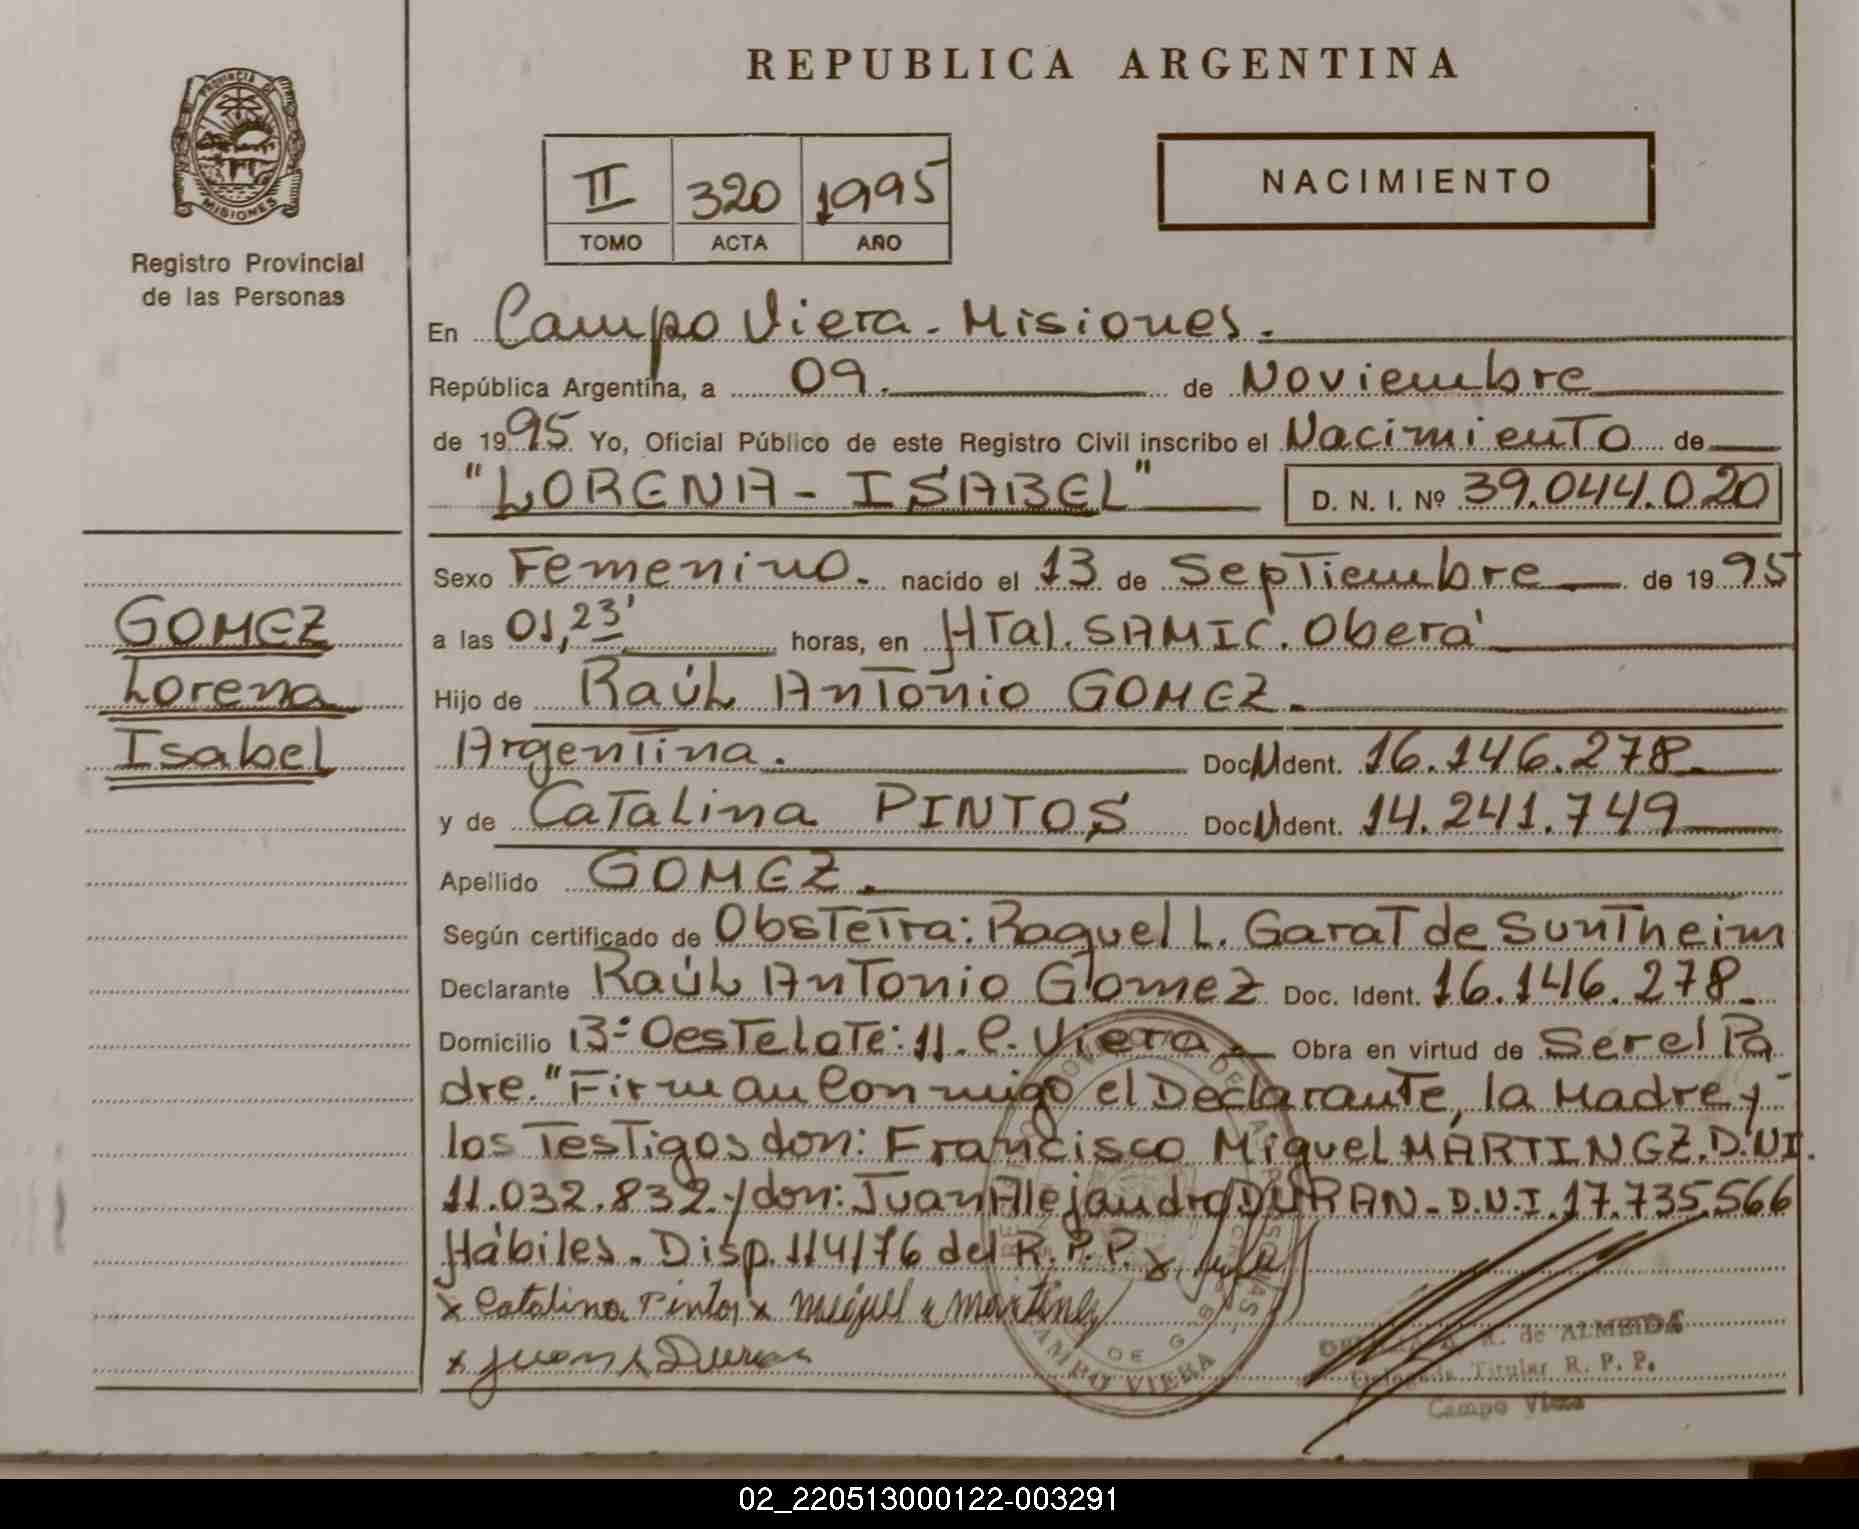 REPUBLICA ARGENTINA
PROVINCIA DE
MISIONES
Registro Provincial
de las Personas
II 320 1995
TOMO ACTA AÑO
NACIMIENTO
En Campo Viera - Misiones.
República Argentina, a 09. de Noviembre
de 1995 Yo, Oficial Público de este Registro Civil inscribo el Nacimiento de
"LORENA - ISABEL" D. N. I. Nº 39.044.020
Sexo Femenino. nacido el 13 de Septiembre de 1995
a las 01,23' horas, en Htal. SAMIC. Oberá
Hijo de Raúl Antonio GOMEZ.
Argentina. Doc. Ident. 16.146.278
y de Catalina PINTOS Doc. Ident. 14.241.749
Apellido GOMEZ.
Según certificado de Obstetra: Raquel L. Garat de Suntheim
Declarante Raúl Antonio Gomez Doc. Ident. 16.146.278
Domicilio 13- Oeste Lote: 11. C. Viera Obra en virtud de Ser el Pa
dre." Firman Conmigo el Declarante, la Madre y
los Testigos don: Francisco Miguel MARTINEZ. D.NI.
11.032.832 y don: Juan Alejandro DURAN - D.N.I. 17.735.566
Hábiles. Disp. 114/76 del R.P.P. x
x Catalina Pintos x miguel martinez
x juan A Duran
GOMEZ
Lorena
Isabel
CAMPO VIERA
R. de ALMEIDA
Titular R. P. P.
Campo Viera
02_220513000122-003291